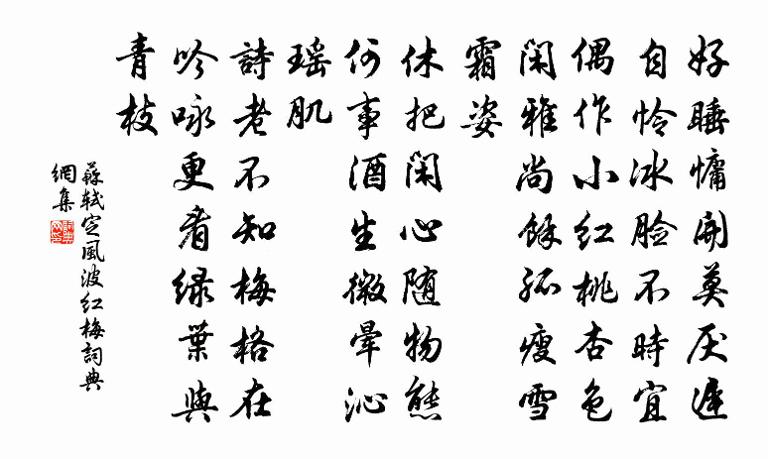 好睡慵開莫厌遲
自怜冰脸不時宜
偶作小红桃杏色
閑雅尚餘孤瘦雪
霜姿
休把閑心随物態
何事酒生微暈沁
瑶肌
詩老不知梅格在
吟咏更看绿葉與
青枝
蘇軾定風波红梅詞典
網集